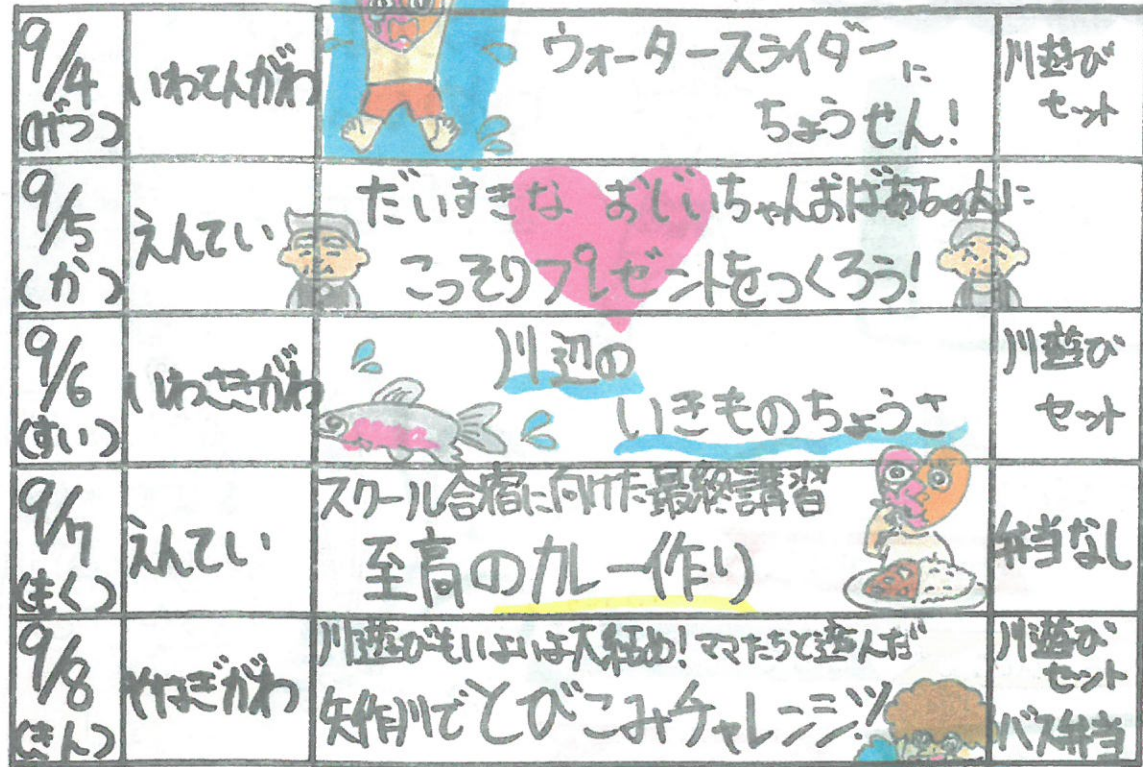 9/4
(げつ)
いわてんがわ
ウォータースライダーに
ちょうせん!
川遊び
セット
9/5
(か)
えんてい
だいすきな おじいちゃんおばあちゃんに
こっそりプレゼントをつくろう!
9/6
(すい)
いわさきがわ
川辺の
いきものちょうさ
川遊び
セット
9/7
(もく)
えんてい
スクール合宿に向けた最終講習
至高のカレー作り
弁当なし
9/8
(きん)
やはぎがわ
川遊びもいよいよ大詰め!ママたちと遊んだ
矢作川でとびこみチャレンジ!!
川遊び
セット
バス弁当